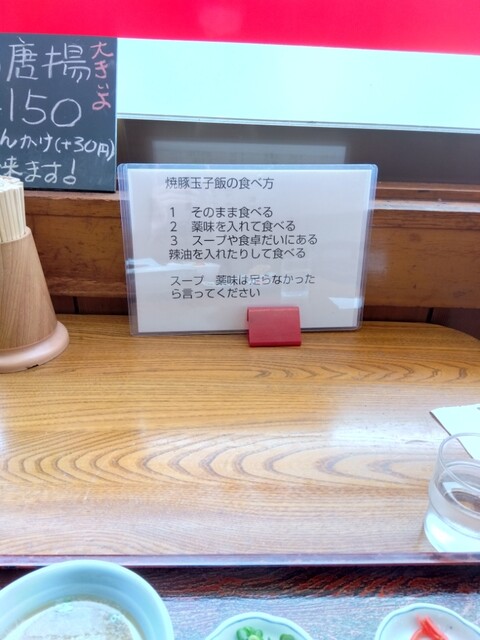 唐揚
大きいよ
150
んかけ(+30円)
来ます!
焼豚玉子飯の食べ方
1 そのまま食べる
2 薬味を入れて食べる
3 スープや食卓だいにある
辣油を入れたりして食べる
スープ 薬味は足らなかった
ら言ってください